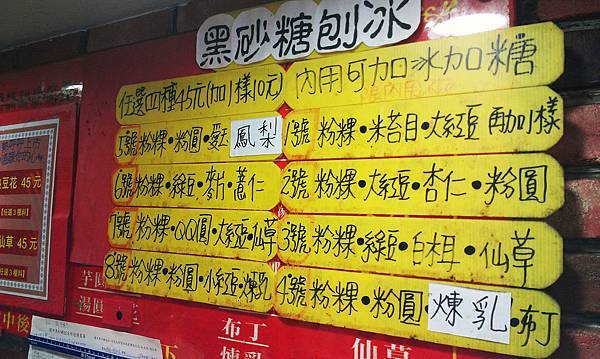 黑砂糖刨冰
任選四種45元(加1樣10元)
內用可加冰加糖
1號 粉粿·米苔目·大紅豆 再加1樣
2號 粉粿·大紅豆·杏仁·粉圓
3號 粉粿·綠豆·白木耳·仙草
4號 粉粿·粉圓·煉乳·布丁
5號 粉粿·粉圓·愛玉 鳳梨
6號 粉粿·綠豆·麥片·薏仁
7號 粉粿·QQ圓·大紅豆·仙草
8號 粉粿·粉圓·小紅豆·煉乳
豆花 45元
【任選3種料】
仙草 45元
【任選3種料】
芋圓
湯圓
布丁
煉乳
仙草
中後